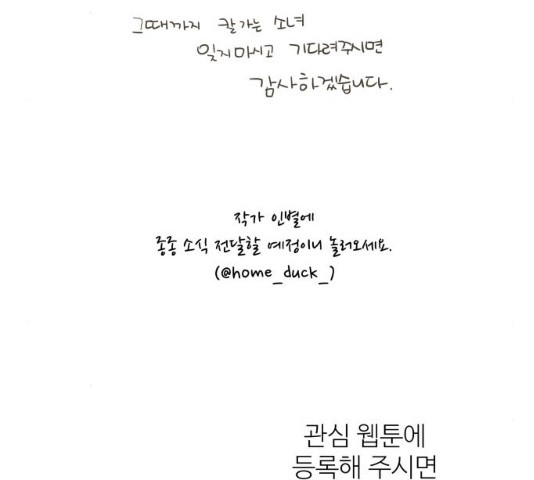 그때까지 칼가는 소녀
잊지마시고 기다려주시면
감사하겠습니다.
작가 인별에
종종 소식 전달할 예정이니 놀러오세요.
(@home_duck_)
관심 웹툰에
등록해 주시면